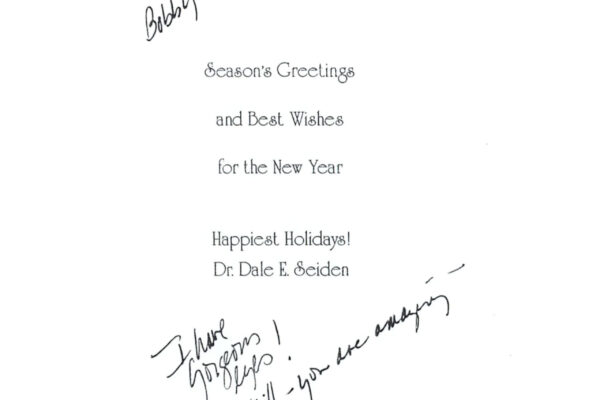 Bobby
Season's Greetings
and Best Wishes
for the New Year
Happiest Holidays!
Dr. Dale E. Seiden
I have
gorgeous
eyes!
- you are amazing -